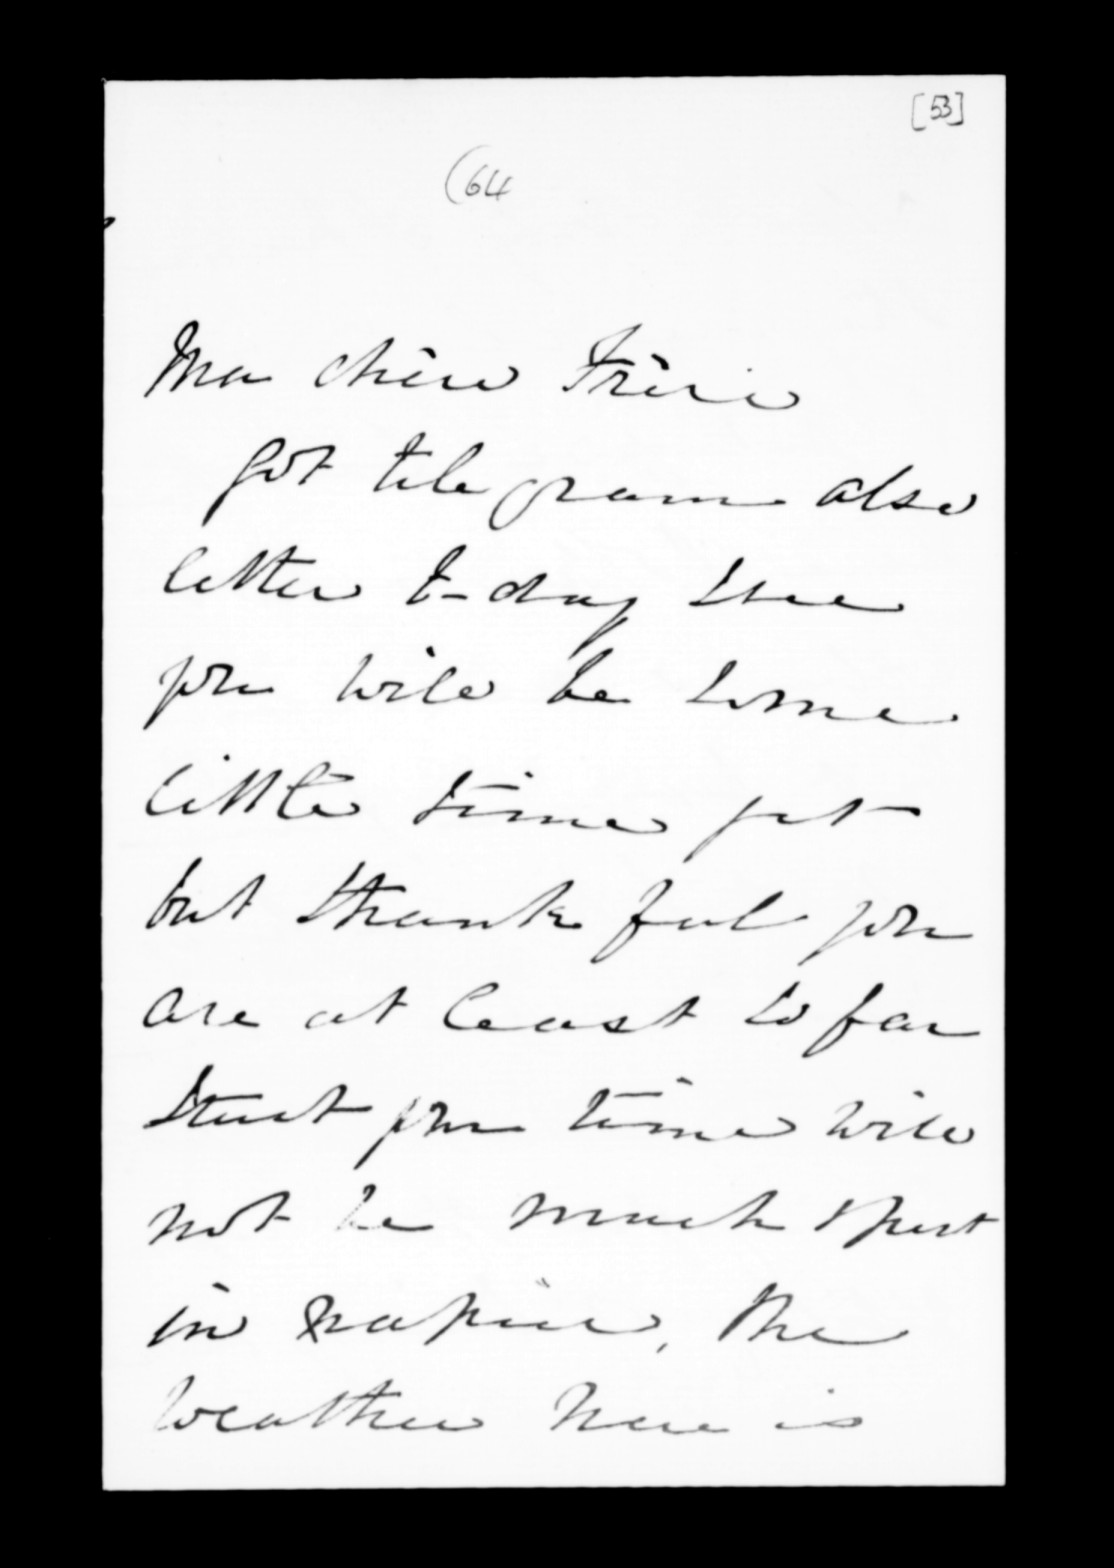 [53]
(64
Ma chère Frère
got telegram also
letter to-day I see
you will be some
little time yet
but thankful you
are at least so far
trust your time will
not be much spent
in Napier, the
weather here is